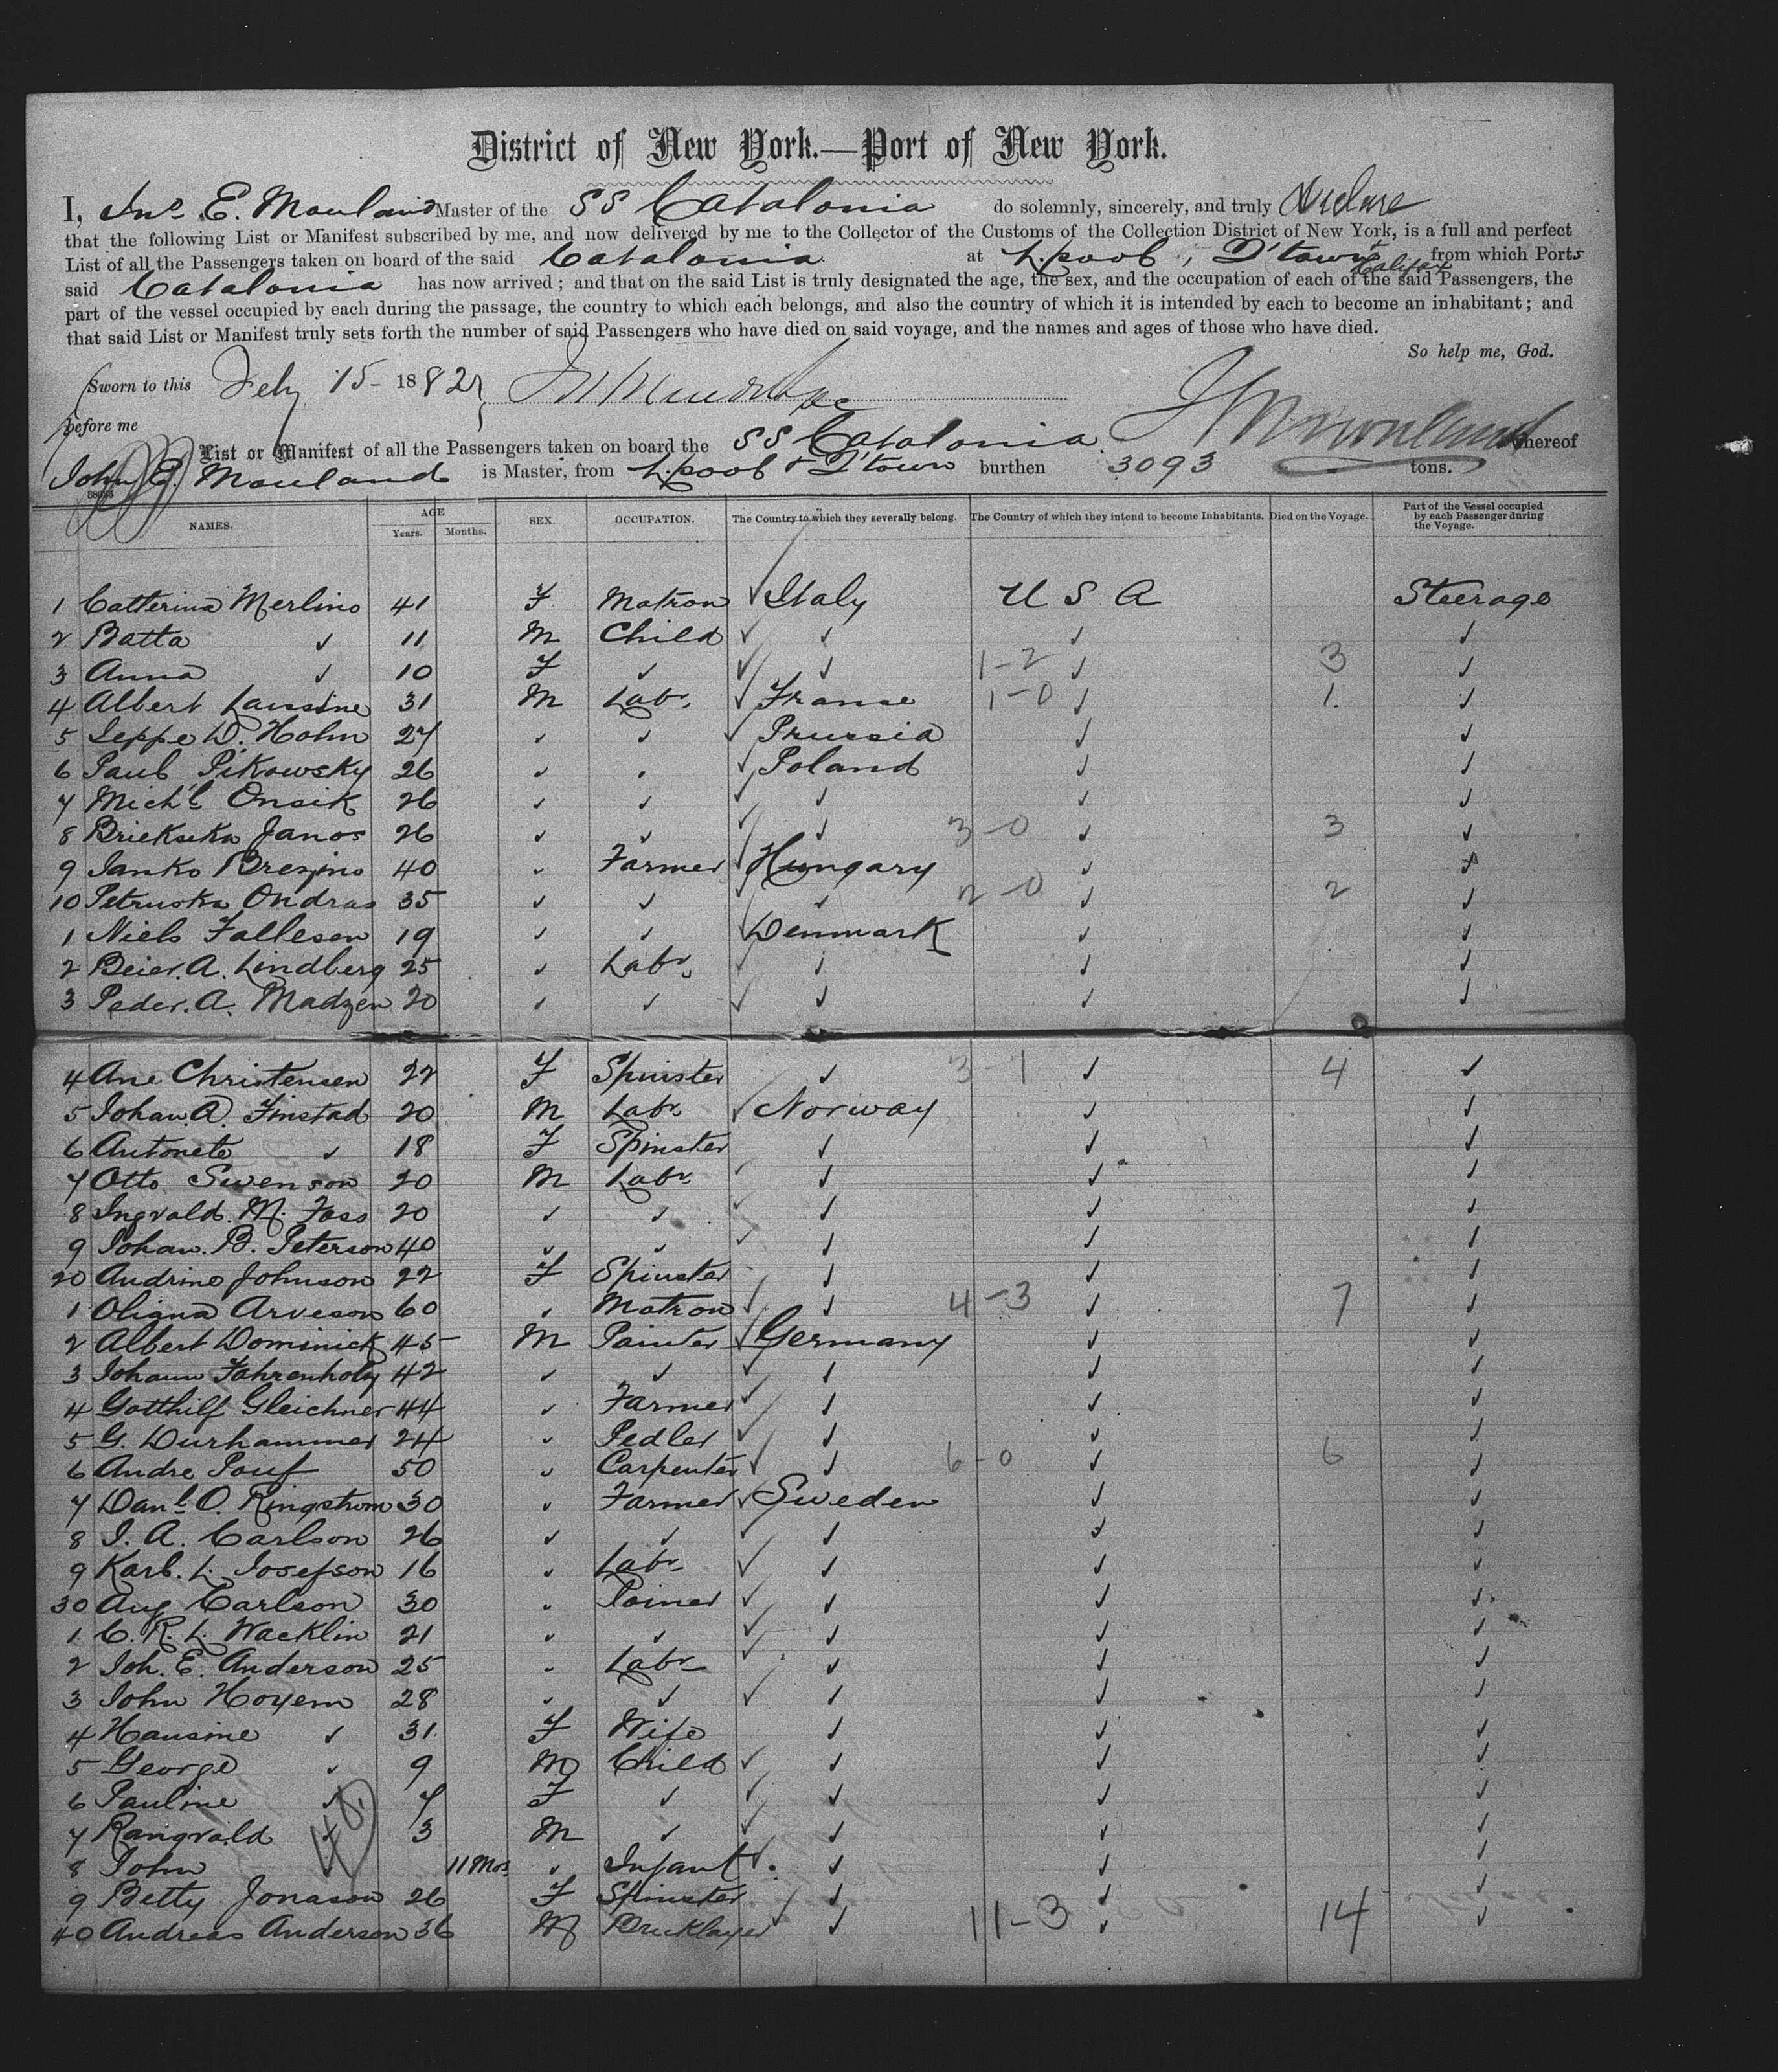 District of New York.—Port of New York.
I, Jno E. Mouland Master of the SS Catalonia do solemnly, sincerely, and truly declare
that the following List or Manifest subscribed by me, and now delivered by me to the Collector of the Customs of the Collection District of New York, is a full and perfect
List of all the Passengers taken on board of the said Catalonia at L.pool, Q'town & Halifax from which Ports
said Catalonia has now arrived; and that on the said List is truly designated the age, the sex, and the occupation of each of the said Passengers, the
part of the vessel occupied by each during the passage, the country to which each belongs, and also the country of which it is intended by each to become an inhabitant; and
that said List or Manifest truly sets forth the number of said Passengers who have died on said voyage, and the names and ages of those who have died.
So help me, God.
Sworn to this Feby 15- 1882
before me
List or Manifest of all the Passengers taken on board the SS Catalonia whereof
John E. Mouland is Master, from L.pool & Q'town burthen 3093 tons.
NAMES. AGE Years. Months. SEX. OCCUPATION. The Country to which they severally belong. The Country of which they intend to become Inhabitants. Died on the Voyage. Part of the Vessel occupied by each Passenger during the Voyage.
1 Catterina Merlino 41 F Matron ✓ Italy U S A Steerage
2 Batta ✓ 11 M Child ✓ ✓ ✓ ✓
3 Anna ✓ 10 F ✓ ✓ ✓ 1-2 ✓ 3 ✓
4 Albert Laissine 31 M Labr. ✓ France 1-0 ✓ 1. ✓
5 Seppe D. Hohn 27 ✓ ✓ ✓ Prussia ✓ ✓
6 Paul Pikowsky 26 ✓ . ✓ Poland ✓ ✓
7 Mich'l Onsik 26 ✓ ✓ ✓ ✓ ✓ ✓
8 Briekseka Janos 26 ✓ ✓ ✓ ✓ 3-0 ✓ 3 ✓
9 Janko Brezino 40 ✓ Farmer ✓ Hungary ✓ ✓
10 Petruska Ondras 35 ✓ ✓ ✓ ✓ 2-0 ✓ 2 ✓
1 Niels Falleson 19 ✓ ✓ ✓ Denmark ✓ ✓
2 Beier. A. Lindberg 25 ✓ Labr. ✓ ✓ ✓ ✓
3 Peder. A. Madzen 20 ✓ ✓ ✓ ✓ ✓ ✓
4 Ane Christensen 22 F Spinster ✓ 3-1 ✓ 4 ✓
5 Johan. A. Finstad 20 M Labr ✓ Norway ✓ ✓
6 Antonete ✓ 18 F Spinster ✓ ✓ ✓
7 Otto Swenson 20 M Labr ✓ ✓ ✓ ✓
8 Ingvald. M. Foss 20 ✓ ✓ ✓ ✓ ✓ ✓
9 Johan. B. Peterson 40 ✓ ✓ ✓ ✓ ✓ ✓
20 Andrine Johnson 22 F Spinster ✓ ✓ ✓ ✓
1 Oligna Arveson 60 ✓ Matron ✓ ✓ 4-3 ✓ 7 ✓
2 Albert Dominick 45 M Painter ✓ Germany ✓ ✓
3 Johann Fahrenholz 42 ✓ ✓ ✓ ✓ ✓ ✓
4 Gotthilf Gleichner 44 ✓ Farmer ✓ ✓ ✓ ✓
5 G. Durhammer 24 ✓ Pedler ✓ ✓ ✓ ✓
6 Andre Pouf 50 ✓ Carpenter ✓ ✓ 6-0 ✓ 6 ✓
7 Danl. O. Ringstrom 30 ✓ Farmer ✓ Sweden ✓ ✓
8 J. A. Carlson 26 ✓ ✓ ✓ ✓ ✓ ✓
9 Karl. L. Josefson 16 ✓ Labr ✓ ✓ ✓ ✓
30 Aug Carlson 30 ✓ Joiner ✓ ✓ ✓ ✓
1 C. R. L. Wacklin 21 ✓ ✓ ✓ ✓ ✓ ✓
2 Joh. E. Anderson 25 ✓ Labr ✓ ✓ ✓ ✓
3 John Hoyem 28 ✓ ✓ ✓ ✓ ✓ ✓
4 Hansine ✓ 31. F Wife ✓ ✓ ✓
5 George ✓ 9 M Child ✓ ✓ ✓ ✓
6 Pauline ✓ 7 F ✓ ✓ ✓ ✓ ✓
7 Rangvald ✓ 3 M ✓ ✓ ✓ ✓ ✓
8 John ✓ 11 Mos. ✓ Infant ✓ ✓ ✓ ✓
9 Betty Jonason 26 F Spinster ✓ ✓ ✓ ✓
40 Andreas Anderson 36 M Bricklayer ✓ ✓ 11-3 ✓ 14 ✓
40